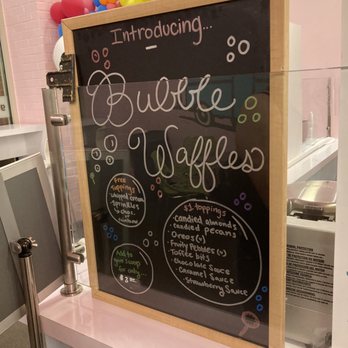 Introducing...
Bubble
Waffles
Free
Toppings
whipped cream
Sprinkles
Add to
your scoop
for only...
$3.00
$1 toppings
• Candied almonds
• candied pecans
• Oreos (v)
• Fruity Pebbles (v)
• Toffee bits
• Chocolate Sauce
• Caramel Sauce
• Strawberry Sauce